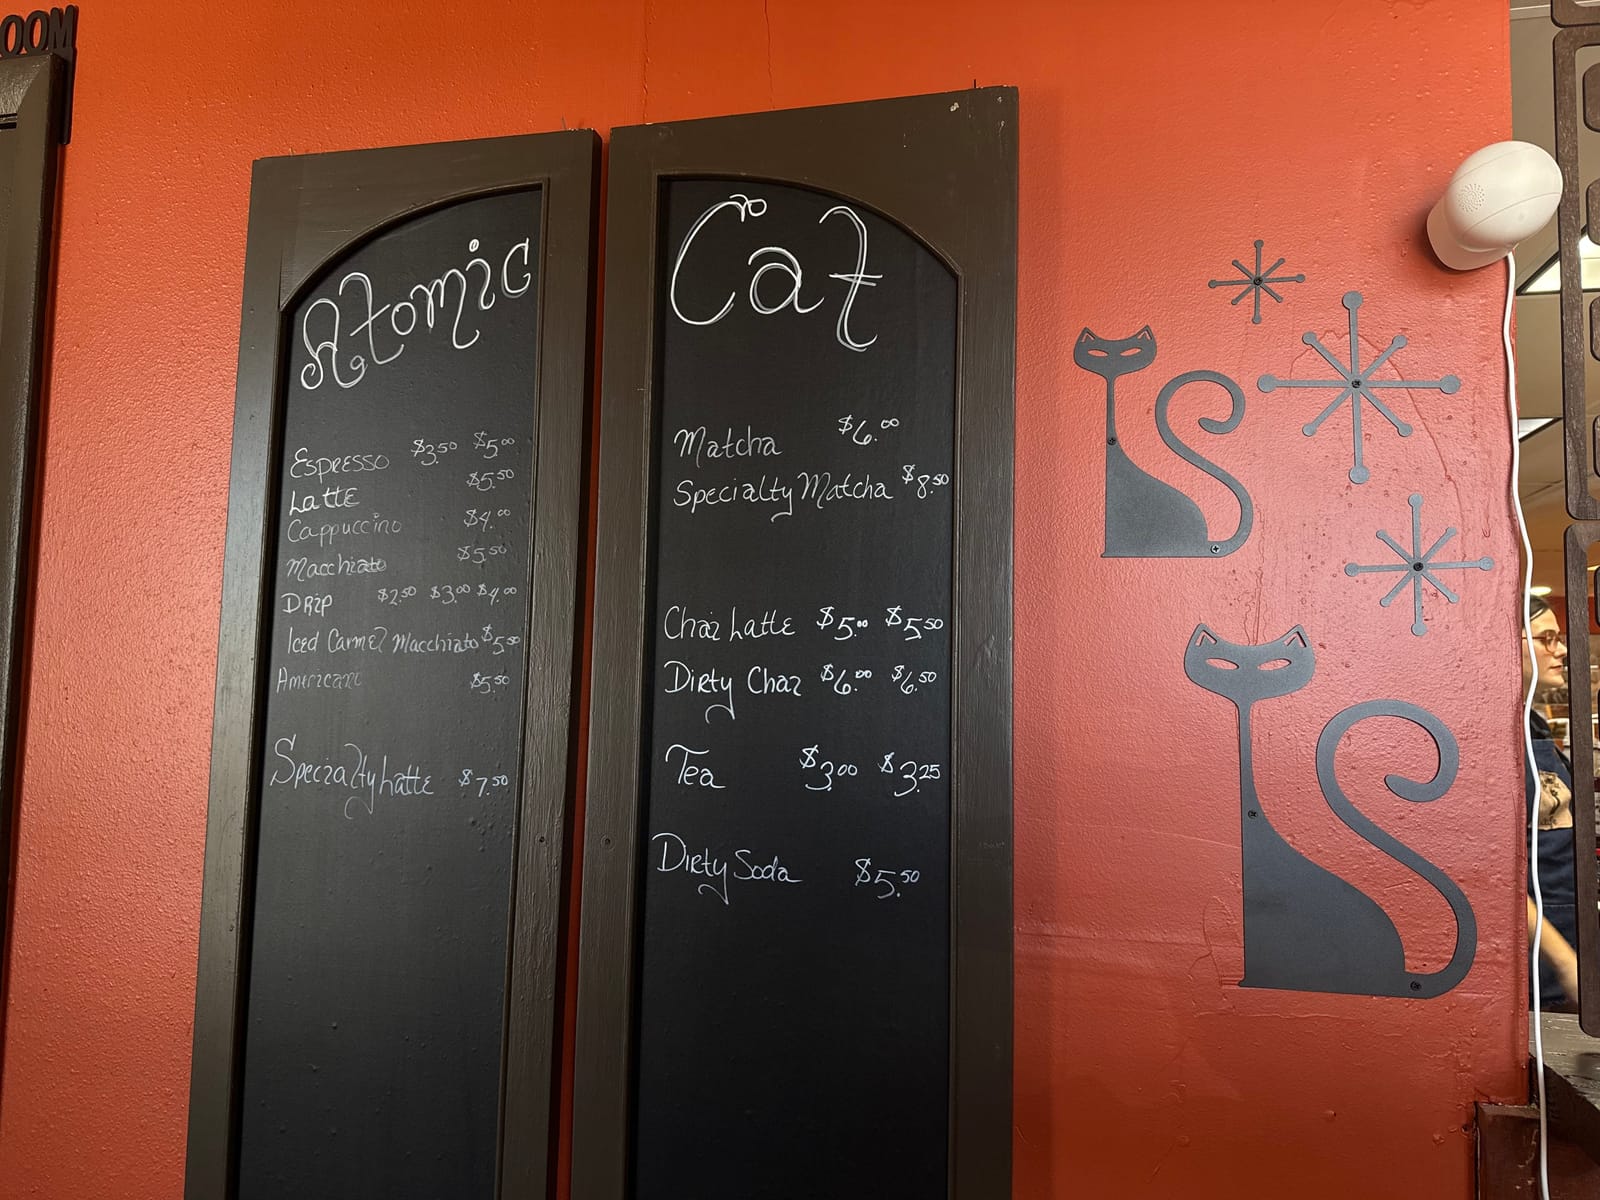 OOM
Atomic
Espresso $3.50 $5.00
Latte $5.50
Cappuccino $4.00
Macchiato $5.50
Drip $2.50 $3.00 $4.00
Iced Carmel Macchiato $5.50
Americano $5.50
Specialty Latte $7.50
Cat
Matcha $6.00
Specialty Matcha $8.50
Chai Latte $5.00 $5.50
Dirty Chai $6.00 $6.50
Tea $3.00 $3.25
Dirty Soda $5.50